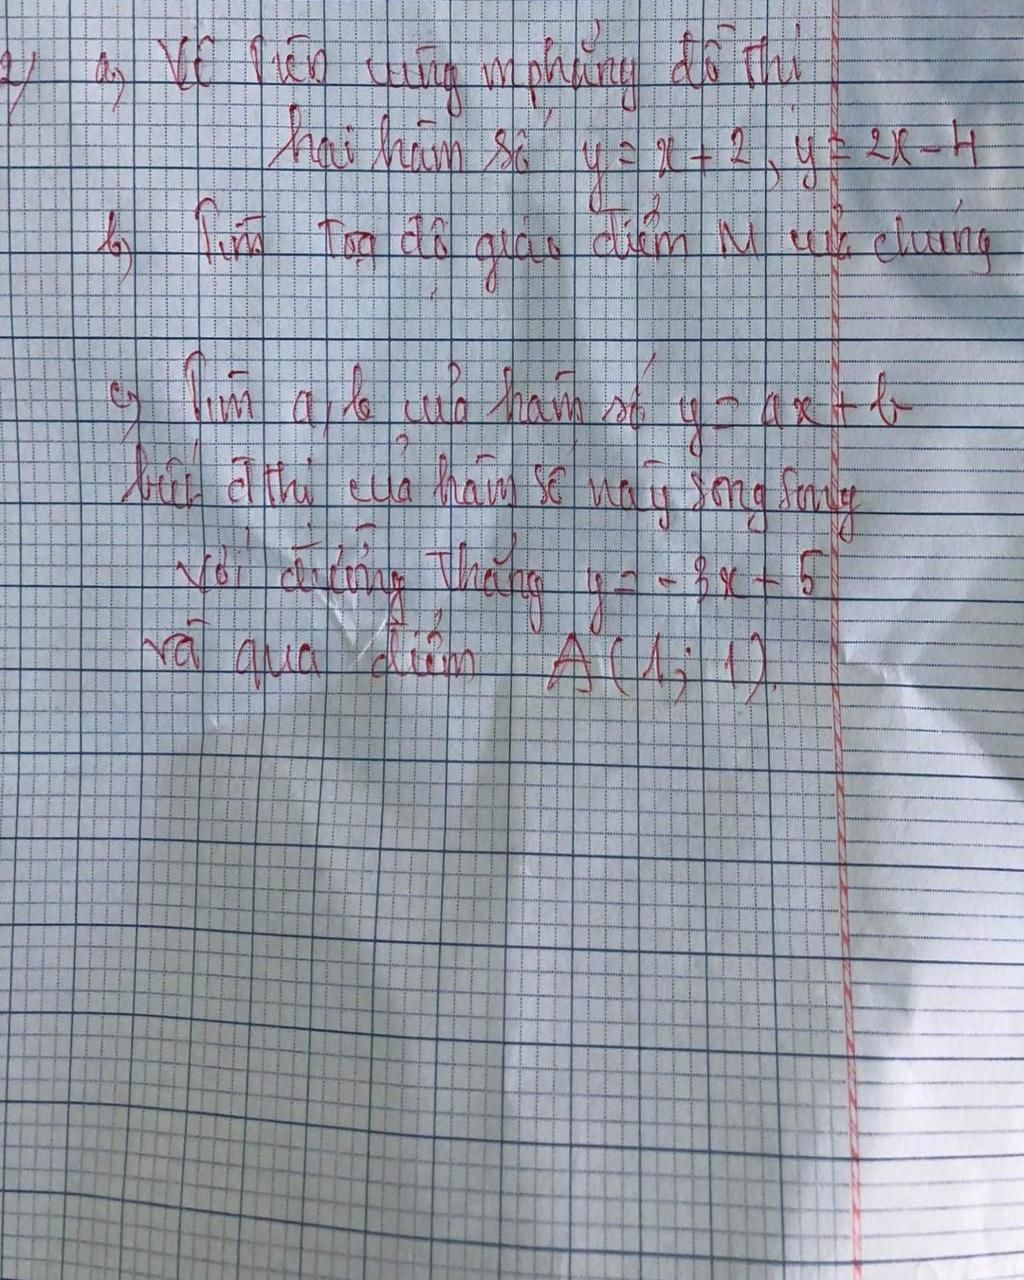 2/ a, Vẽ trên cùng mphẳng đồ thị
hai hàm số y = x + 2, y = 2x - 4
b, Tìm toạ độ giao điểm M của chúng
c, Tìm a, b của hàm số y = ax + b
biết đthị của hàm số này song song
với đường thẳng y = - 3x + 5
và qua điểm A(1; 1).